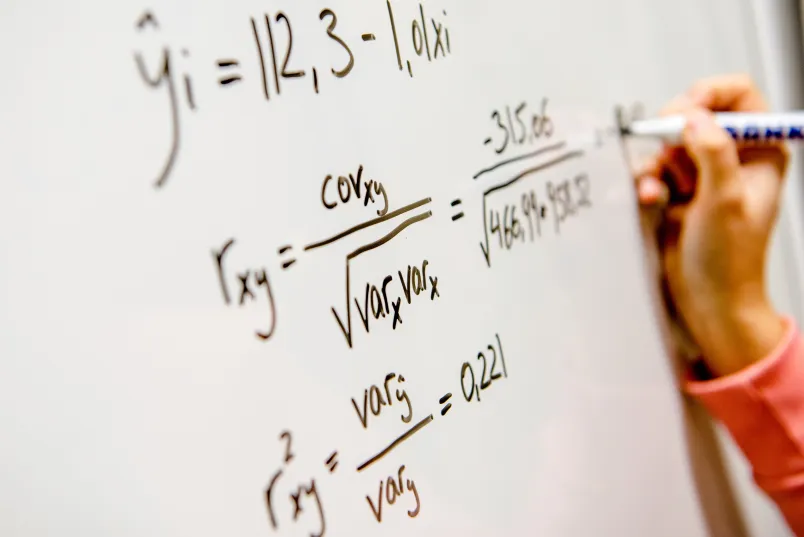 ŷi = 112,3 - 1,01xi
rxy = covxy / √varx varx = -315,06 / √466,99•458,12
r²xy = varŷ / vary = 0,221